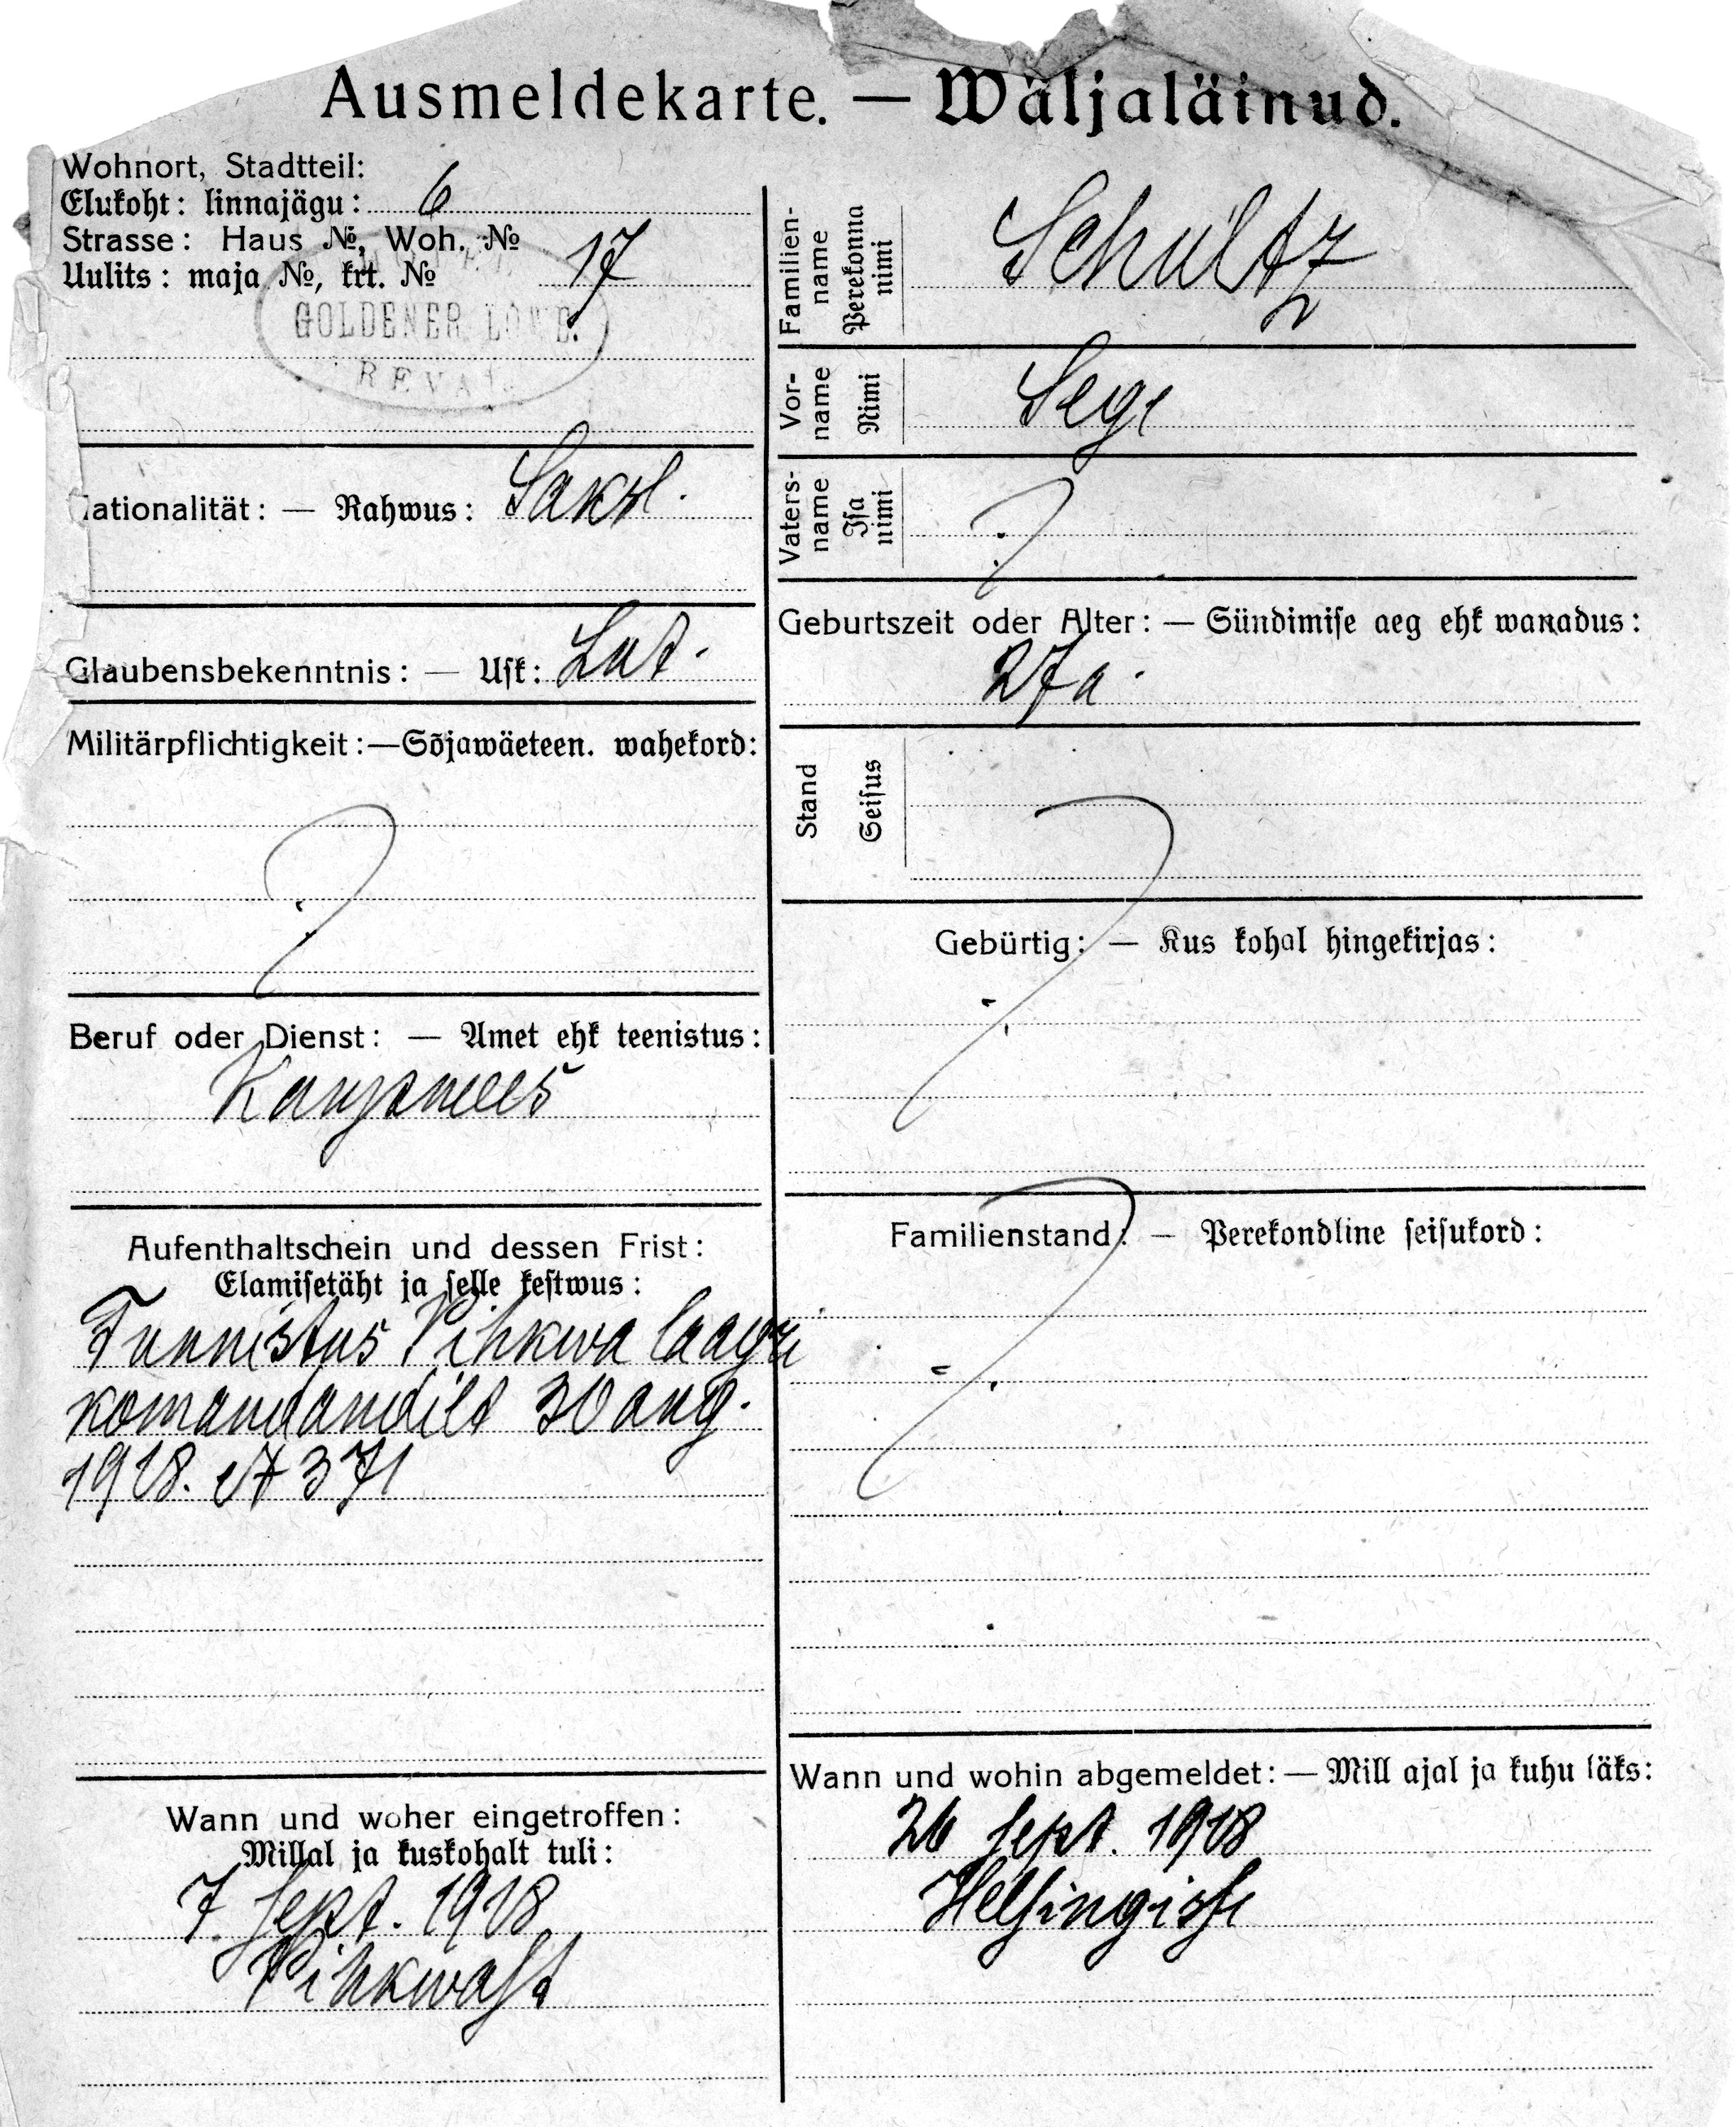 Ausmeldekarte. — Wäljaläinud.
Wohnort, Stadtteil:
Elukoht: linnajägu: 6
Strasse: Haus №, Woh. №
Uulits: maja №, krt. № 17
GOLDENER LÖWE.
REVAL.
Nationalität: — Rahwus: Saksl.
Glaubensbekenntnis: — Usk: Lut.
Militärpflichtigkeit: — Sõjawäeteen. wahekord:
?
Beruf oder Dienst: — Amet ehk teenistus:
Kaupmees
Aufenthaltschein und dessen Frist:
Elamisetäht ja selle kestwus:
Tunnistus Pihkwa laagri
komandandilt 30 aug.
1918. № 371
Wann und woher eingetroffen:
Millal ja kuskohalt tuli:
7. sept. 1918
Pihkwast
Familien-
name
Perekonna
nimi
Schultz
Vor-
name
Nimi
Sege
Vaters-
name
Isa
nimi
?
Geburtszeit oder Alter: — Sündimise aeg ehk wanadus:
27 a.
Stand
Seisus
?
Gebürtig: — Kus kohal hingekirjas:
Familienstand: — Perekondline seisukord:
?
Wann und wohin abgemeldet: — Mill ajal ja kuhu läks:
26 sept. 1918
Helsingisse